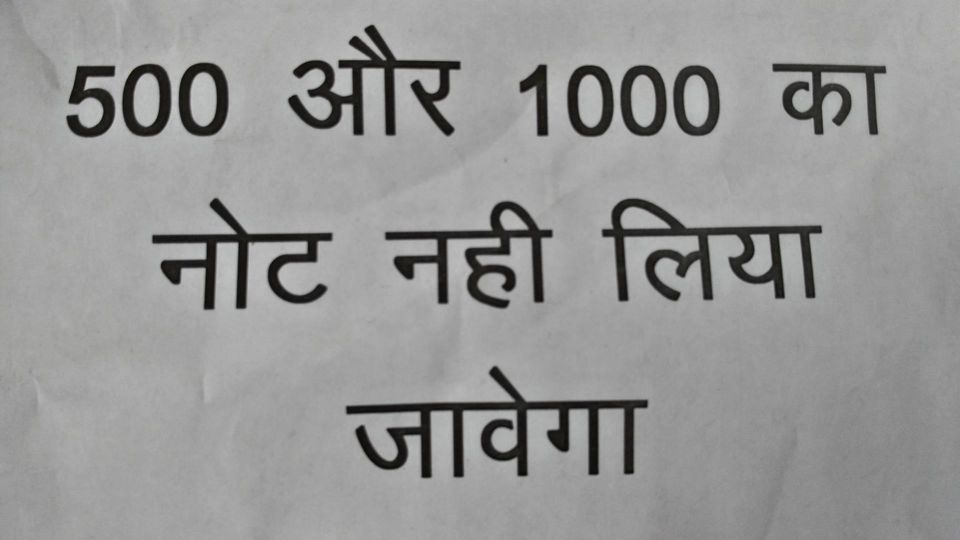 500 और 1000 का
नोट नही लिया
जावेगा